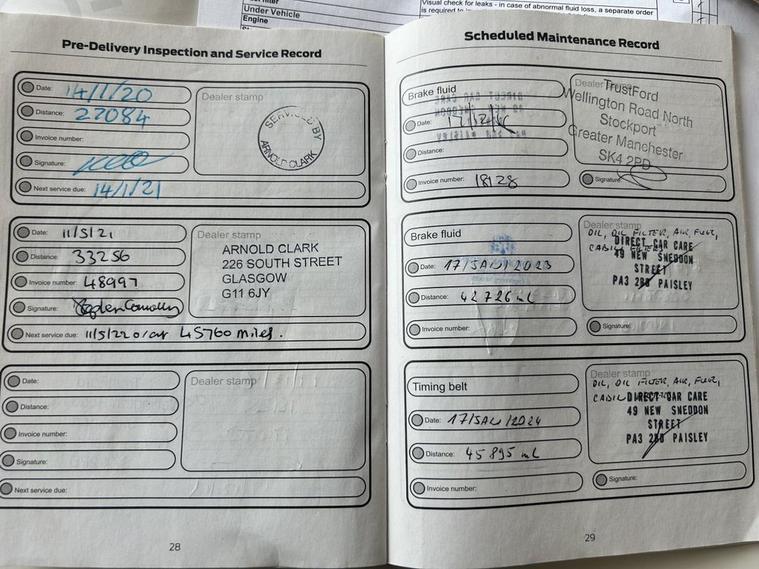 Under Vehicle
Engine
Visual check for leaks - in case of abnormal fluid loss, a separate order
is required to
Pre-Delivery Inspection and Service Record
Date: 14/1/20
Distance: 22084
Invoice number:
Signature:
Next service due: 14/1/21
Dealer stamp
SERVICED BY
ARNOLD CLARK
Date: 11/5/21
Distance: 33256
Invoice number: 48997
Signature:
Next service due: 11/5/22 o/or 45760 miles.
Dealer stamp
ARNOLD CLARK
226 SOUTH STREET
GLASGOW
G11 6JY
Date:
Distance:
Invoice number:
Signature:
Next service due:
Dealer stamp
28
Scheduled Maintenance Record
Brake fluid
Date:
Distance:
Invoice number: 18128
Dealer
TrustFord
Wellington Road North
Stockport
Greater Manchester
SK4 2PD
Signature:
Brake fluid
Date: 17/JAN/2023
Distance: 42726 mL
Invoice number:
Dealer stamp
OIL, OIL FILTER, AIR, FUEL,
CABIN FILTER
DIRECT CAR CARE
49 NEW SNEDDON
STREET
PA3 2BD PAISLEY
Signature:
Timing belt
Date: 17/JAN/2024
Distance: 45895 mL
Invoice number:
Dealer stamp
OIL, OIL FILTER, AIR, FUEL,
CABIN
DIRECT CAR CARE
49 NEW SNEDDON
STREET
PA3 2BD PAISLEY
Signature:
29